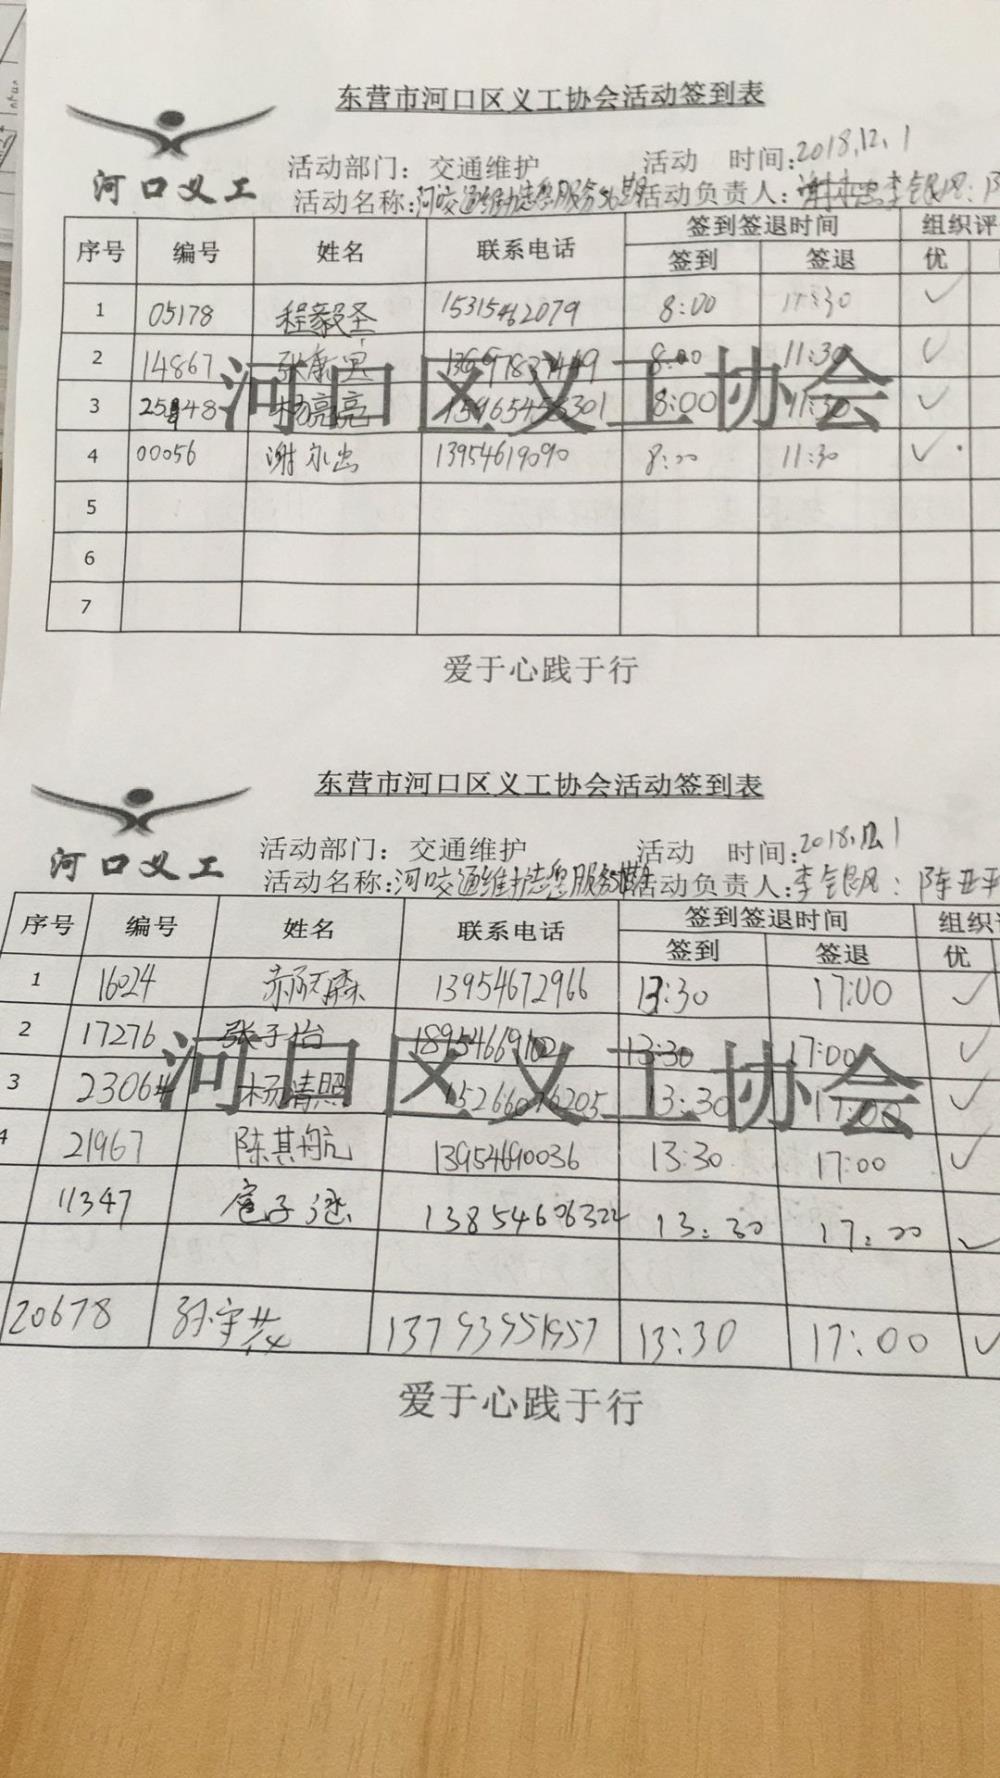 东营市河口区义工协会活动签到表
河口义工
活动部门：交通维护 活动 时间：2018.12.1
活动名称：河口交通维护志愿服务 活动负责人：李银凤：
序号 编号 姓名 联系电话 签到签退时间 组织评
签到 签退 优
1 05178 程毅圣 15315462079 8:00 11:30 ✓
2 14867 8:00 11:30 ✓
3 杨亮亮 8:00 11:30 ✓
4 00056 谢永忠 13954619090 8:00 11:30 ✓
5
6
7
河口区义工协会
爱于心践于行
东营市河口区义工协会活动签到表
河口义工
活动部门：交通维护 活动 时间：2018.12.1
活动名称：河口交通维护志愿服务 活动负责人：李银凤：陈亚平
序号 编号 姓名 联系电话 签到签退时间 组织评
签到 签退 优
1 16024 13954672966 13:30 17:00 ✓
2 17276 张子怡 13:30 17:00 ✓
3 23064 杨清照 13:30 17:00 ✓
4 21967 陈其航 13954690036 13:30 17:00 ✓
11347 13854606322 13:30 17:00 ✓
20678 孙守芬 13793951957 13:30 17:00 ✓
河口区义工协会
爱于心践于行